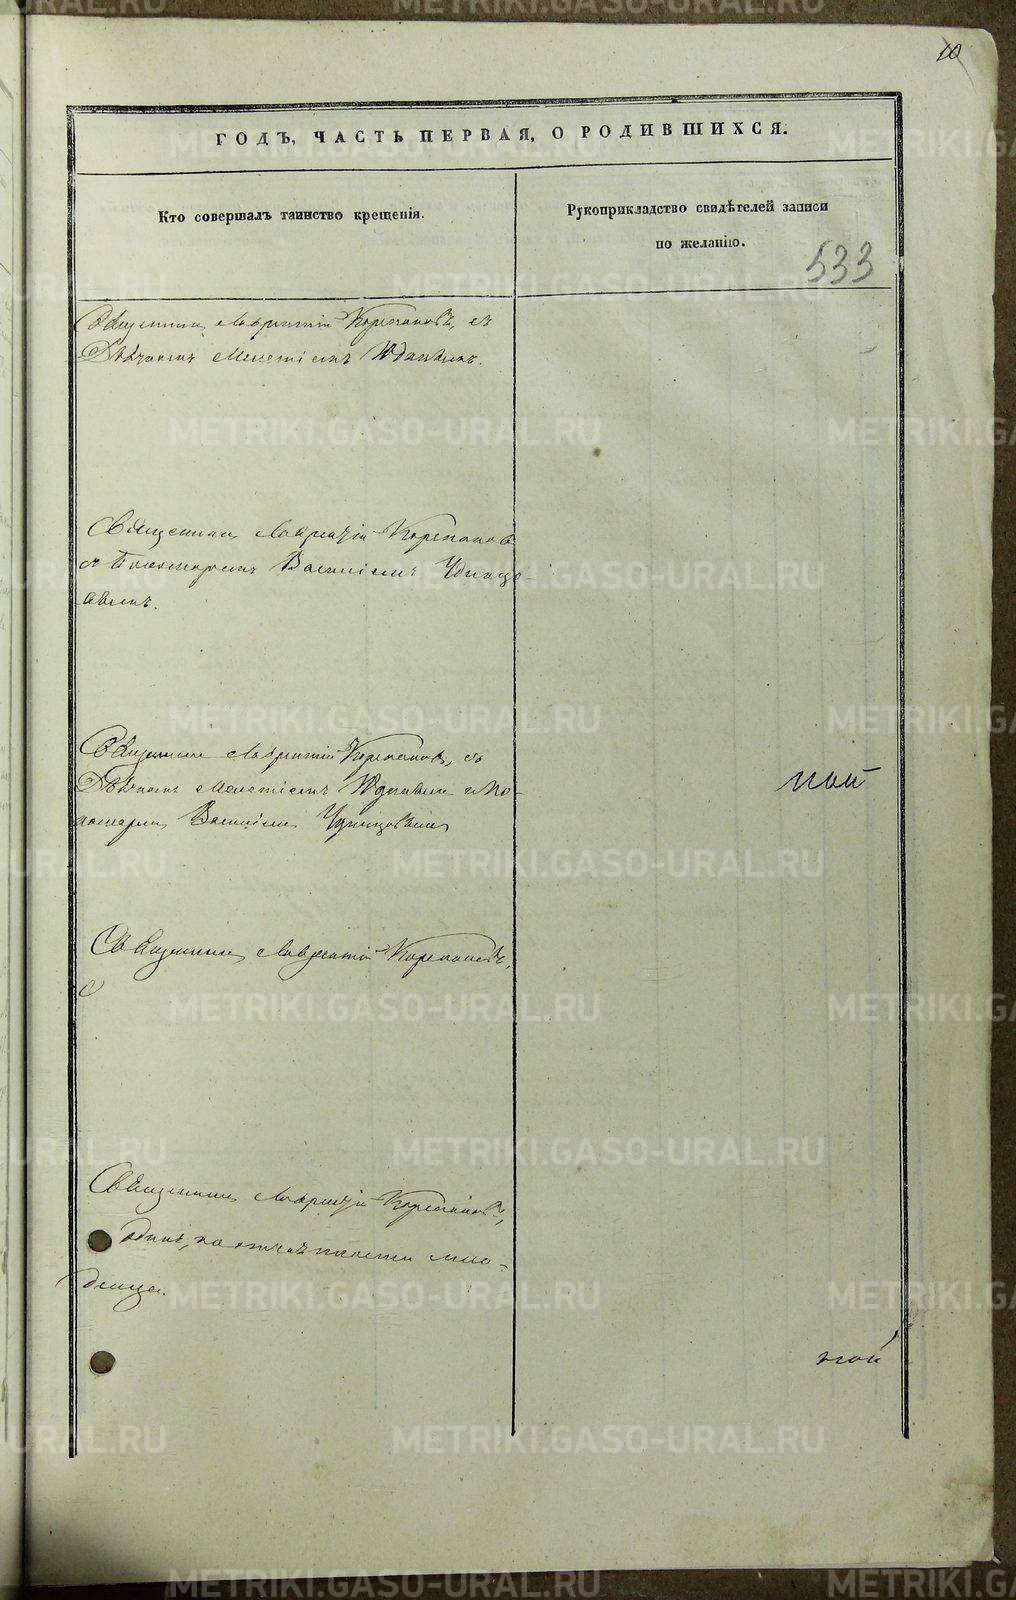 10
ГОДЪ, ЧАСТЬ ПЕРВАЯ, О РОДИВШИХСЯ.
Кто совершалъ таинство крещенія.
Рукоприкладство свидѣтелей записи
по желанію.
533
Священник Лаврентій Корепановъ, съ
Дьячкомъ Мелетіемъ
Священник Лаврентій Корепановъ
съ Пономаремъ Василіемъ Удинцо-
вымъ.
Священник Лаврентій Корепановъ, съ
Дьячкомъ Мелетіемъ и по-
номаремъ Василіемъ Удинцовымъ
ной
Священник Лаврентій Корепановъ,
с
Священник Лаврентій Корепановъ,
одинъ, по мла-
денца.
ной
METRIKI.GASO-URAL.RU